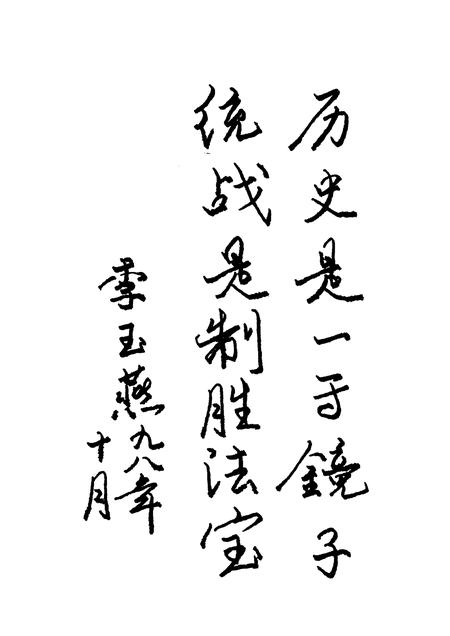 历史是一面镜子
统战是制胜法宝
李玉燕九八年
十月